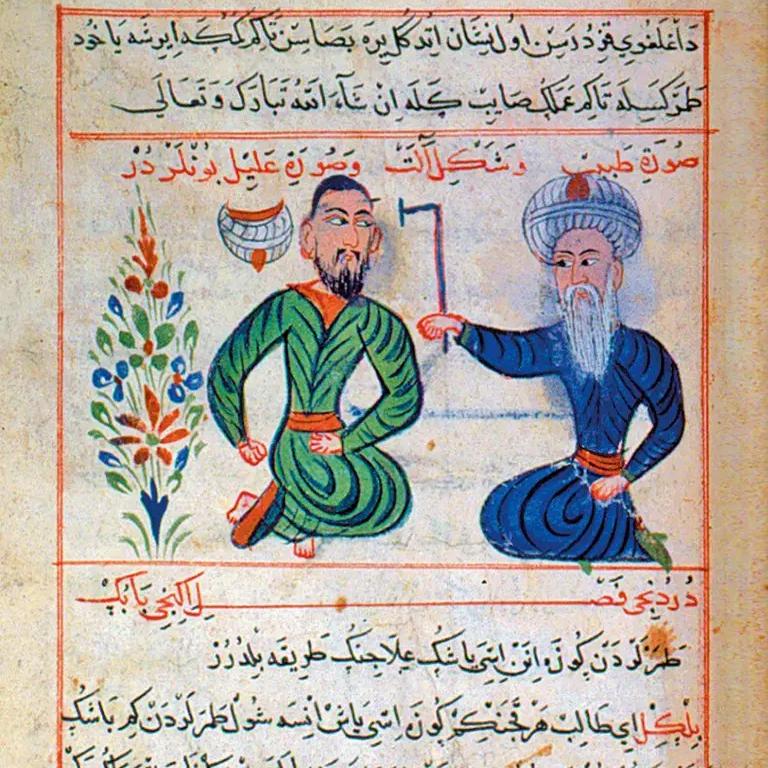 داغلغوي قودرسن اول نشان اتدكل يره بصاسن تاكم ككه ايرشه ياخود
طمر كسيله تاكم عملك صايب كله ان شاء الله تبارك وتعالى
صورة طبيب وشكل آلت وصورة عليل بونلردر
دردنجى فصل اكنجى بابك
طمرلردن كوزه انن اسى ياشك علاجنك طريقه بلدرر
بلكل اى طالب هر قچنكم كوزه اسى ياش انسه شول طمرلردن كم ياشك